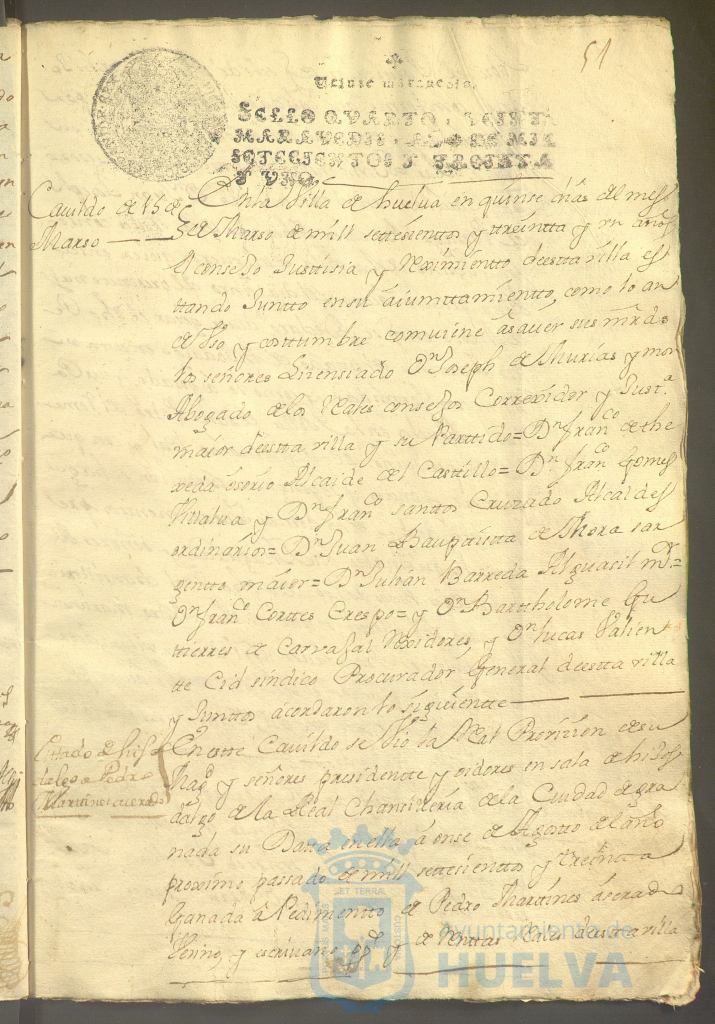 51
Veinte maravedis.
SELLO QVARTO, VEINTE
MARAVEDIS, AÑO DE MIL
SETECIENTOS Y TREINTA
Y VNO.
Cavildo de 15 de
Marso
En la Villa de huelva en quinse dias del mes
de Marso de mill settesientos y ttreintta y un años
El consejo Justtisia y Reximientto deestta villa es
ttando Juntto en su aiunttamientto, como lo an
de Uso y costtumbre comviene a saver sus mrds
los señores Lisensiado Dn Joseph de Murias y mon
Abogado de los Reales consejos Correxidor y Justª
maior deestta villa y su Parttido = Dn franco de the
xeda osorio Alcaide del Casttillo = Dn franco Gomes
Villalva y Dn franco santtos Cruzado Alcaldes
ordinarios = Dn Juan Baupttistta de Mora sar
gentto maior = Dn Julian Barreda Alguasil mor =
Dn franco Corttes Crespo = y Dn Barttholome Gu
ttierres de Carvajal Rexidores y Dn lucas Valien
tte Cid sindico Procurador General deestta villa
y Junttos acordaron lo siguientte
Estado de hijos
dalgo a Pedro
Martines acevedo
En estte Cavildo se vio la Real Provizion de su
Magd y señores presidentte y oidores en sala de hijos
dalgo de la Real Chansilleria de la Ciudad de gra
nada su Datta en ella a onse de Agostto del año
proximo passado de mill settesienttos y ttreintta
Ganada a Pedimentto de Pedro Marttines asevedo
Vesino, y escrivano pco y de Renttas Reales deestta villa
SET TERRAE
PORTUS MARIS
CUSTODIA
Ayuntamiento de
HUELVA